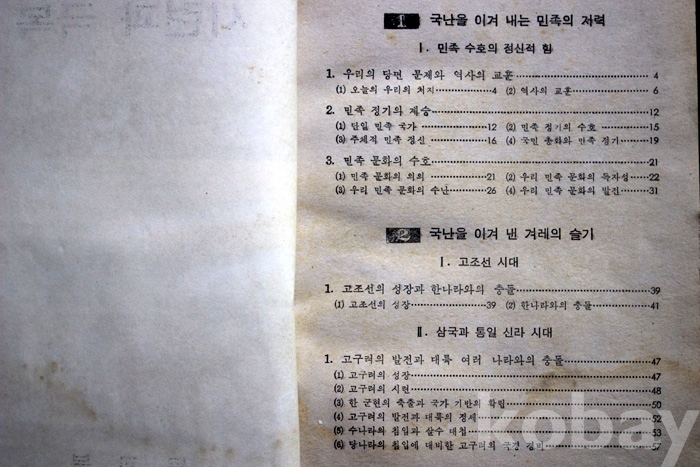 1 국난을 이겨 내는 민족의 저력
Ⅰ. 민족 수호의 정신적 힘
1. 우리의 당면 문제와 역사의 교훈 4
(1) 오늘의 우리의 처지 4 (2) 역사의 교훈 6
2. 민족 정기의 계승 12
(1) 단일 민족 국가 12 (2) 민족 정기의 수호 15
(3) 주체적 민족 정신 16 (4) 국민 총화와 민족 정기 19
3. 민족 문화의 수호 21
(1) 민족 문화의 의의 21 (2) 우리 민족 문화의 독자성 22
(3) 우리 민족 문화의 수난 26 (4) 우리 민족 문화의 발전 31
2 국난을 이겨 낸 겨레의 슬기
Ⅰ. 고조선 시대
1. 고조선의 성장과 한나라와의 충돌 39
(1) 고조선의 성장 39 (2) 한나라와의 충돌 41
Ⅱ. 삼국과 통일 신라 시대
1. 고구려의 발전과 대륙 여러 나라와의 충돌 47
(1) 고구려의 성장 47
(2) 고구려의 시련 48
(3) 한 군현의 축출과 국가 기반의 확립 50
(4) 고구려의 발전과 대륙의 정세 52
(5) 수나라의 침입과 살수 대첩 53
(6) 당나라의 침입에 대비한 고구려의 국경 경비 57
kobay